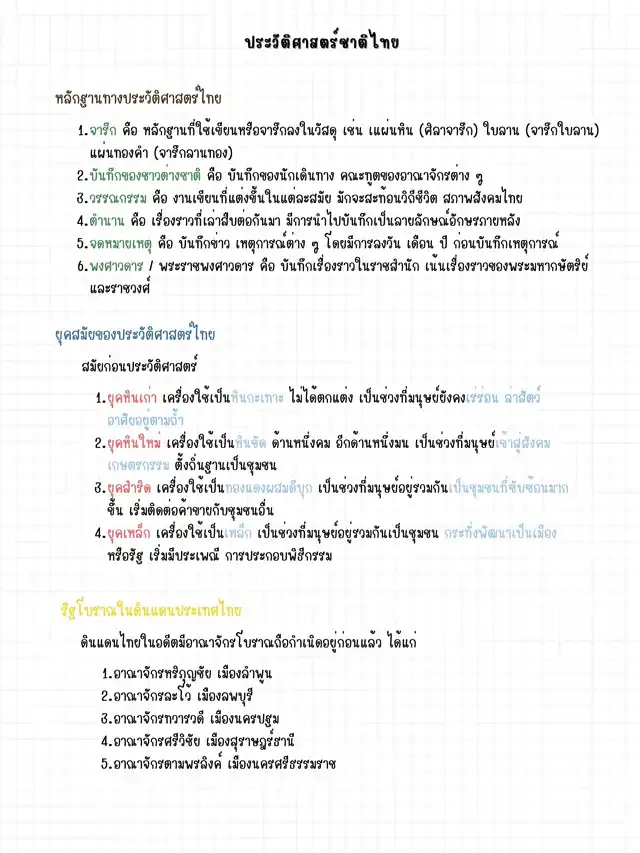 ประวัติศาสตร์ชาติไทย
หลักฐานทางประวัติศาสตร์ไทย
1.จารึก คือ หลักฐานที่ใช้เขียนหรือจารึกลงในวัสดุ เช่น เแผ่นหิน (ศิลาจารึก) ใบลาน (จารึกใบลาน)
แผ่นทองคำ (จารึกลานทอง)
2.บันทึกของชาวต่างชาติ คือ บันทึกของนักเดินทาง คณะทูตของอาณาจักรต่าง ๆ
3.วรรณกรรม คือ งานเขียนที่แต่งขึ้นในแต่ละสมัย มักจะสะท้อนวิถีชีวิต สภาพสังคมไทย
4.ตำนาน คือ เรื่องราวที่เล่าสืบต่อกันมา มีการนำไปบันทึกเป็นลายลักษณ์อักษรภายหลัง
5.จดหมายเหตุ คือ บันทึกข่าว เหตุการณ์ต่าง ๆ โดยมีการลงวัน เดือน ปี ก่อนบันทึกเหตุการณ์
6.พงศาวดาร / พระราชพงศาวดาร คือ บันทึกเรื่องราวในราชสำนัก เน้นเรื่องราวของพระมหากษัตริย์
และราชวงศ์
ยุคสมัยของประวัติศาสตร์ไทย
สมัยก่อนประวัติศาสตร์
1.ยุคหินเก่า เครื่องใช้เป็นหินกะเทาะ ไม่ได้ตกแต่ง เป็นช่วงที่มนุษย์ยังคงเร่ร่อน ล่าสัตว์
อาศัยอยู่ตามถ้ำ
2.ยุคหินใหม่ เครื่องใช้เป็นหินขัด ด้านหนึ่งคม อีกด้านหนึ่งมน เป็นช่วงที่มนุษย์เข้าสู่สังคม
เกษตรกรรม ตั้งถิ่นฐานเป็นชุมชน
3.ยุคสำริด เครื่องใช้เป็นทองแดงผสมดีบุก เป็นช่วงที่มนุษย์อยู่รวมกันเป็นชุมชนที่ซับซ้อนมาก
ขึ้น เริ่มติดต่อค้าขายกับชุมชนอื่น
4.ยุคเหล็ก เครื่องใช้เป็นเหล็ก เป็นช่วงที่มนุษย์อยู่รวมกันเป็นชุมชน กระทั่งพัฒนาเป็นเมือง
หรือรัฐ เริ่มมีประเพณี การประกอบพิธีกรรม
รัฐโบราณในดินแดนประเทศไทย
ดินแดนไทยในอดีตมีอาณาจักรโบราณถือกำเนิดอยู่ก่อนแล้ว ได้แก่
1.อาณาจักรหริภุญชัย เมืองลำพูน
2.อาณาจักรละโว้ เมืองลพบุรี
3.อาณาจักรทวารวดี เมืองนครปฐม
4.อาณาจักรศรีวิชัย เมืองสุราษฎร์ธานี
5.อาณาจักรตามพรลิงค์ เมืองนครศรีธรรมราช